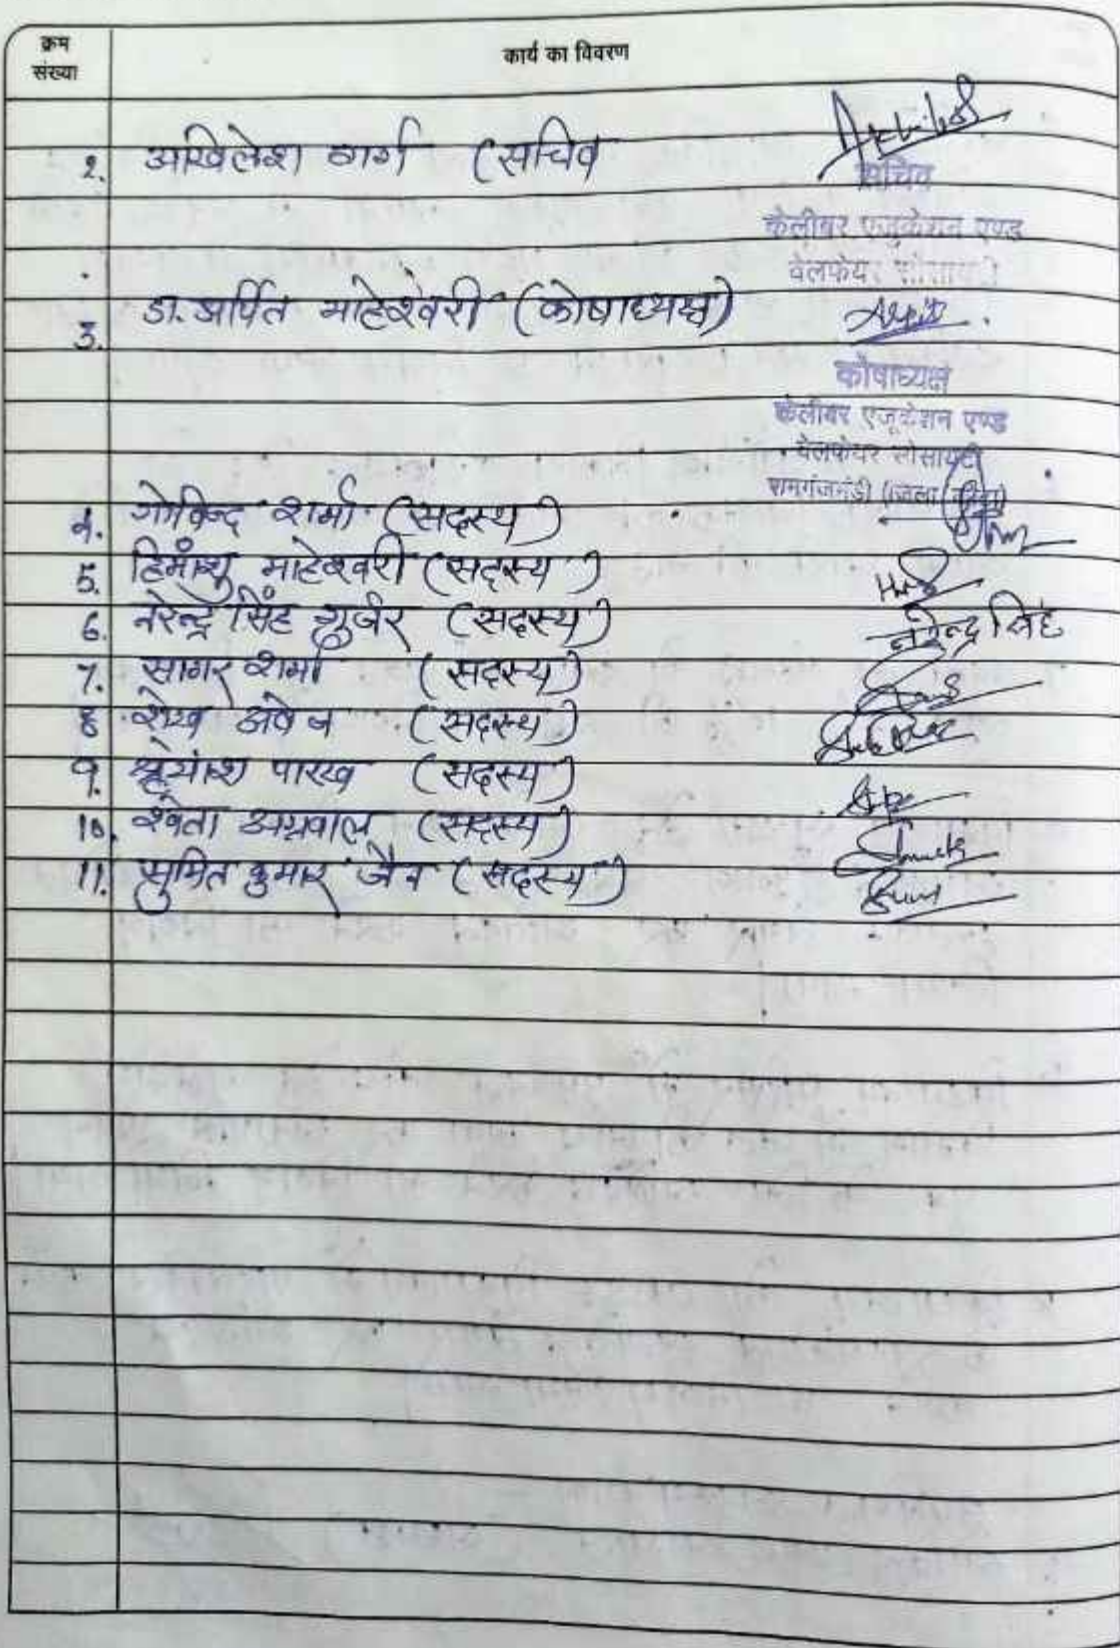 क्रम संख्या
कार्य का विवरण
2. अखिलेश गर्ग (सचिव
सचिव
केलीबर एजुकेशन एण्ड
वेलफेयर सोसायटी
3. डा. अर्पित माहेश्वरी (कोषाध्यक्ष)
कोषाध्यक्ष
केलीबर एजूकेशन एण्ड
वेलफेयर सोसायटी
रामगंजमंडी (जिला
4. गोविन्द शर्मा (सदस्य)
5. हिमांशु माहेश्वरी (सदस्य)
6. नरेन्द्र सिंह गुर्जर (सदस्य) नरेन्द्र सिंह
7. सागर शर्मा (सदस्य)
8 शेख (सदस्य)
9. श्रेयांश पारख (सदस्य)
10. श्वेता अग्रवाल (सदस्य)
11. सुमित कुमार जैन (सदस्य)